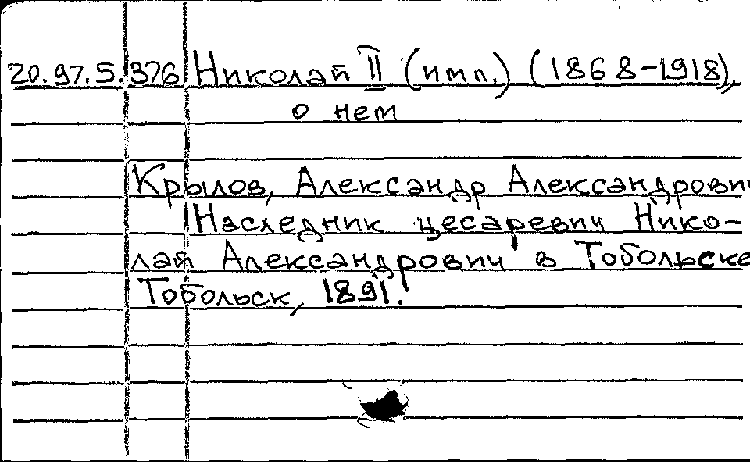 20.97.5.376 Николай II (имп.) (1868-1918),
о нем
Крылов, Александр Александрович
Наследник цесаревич Нико-
лай Александрович в Тобольске
Тобольск, 1891.